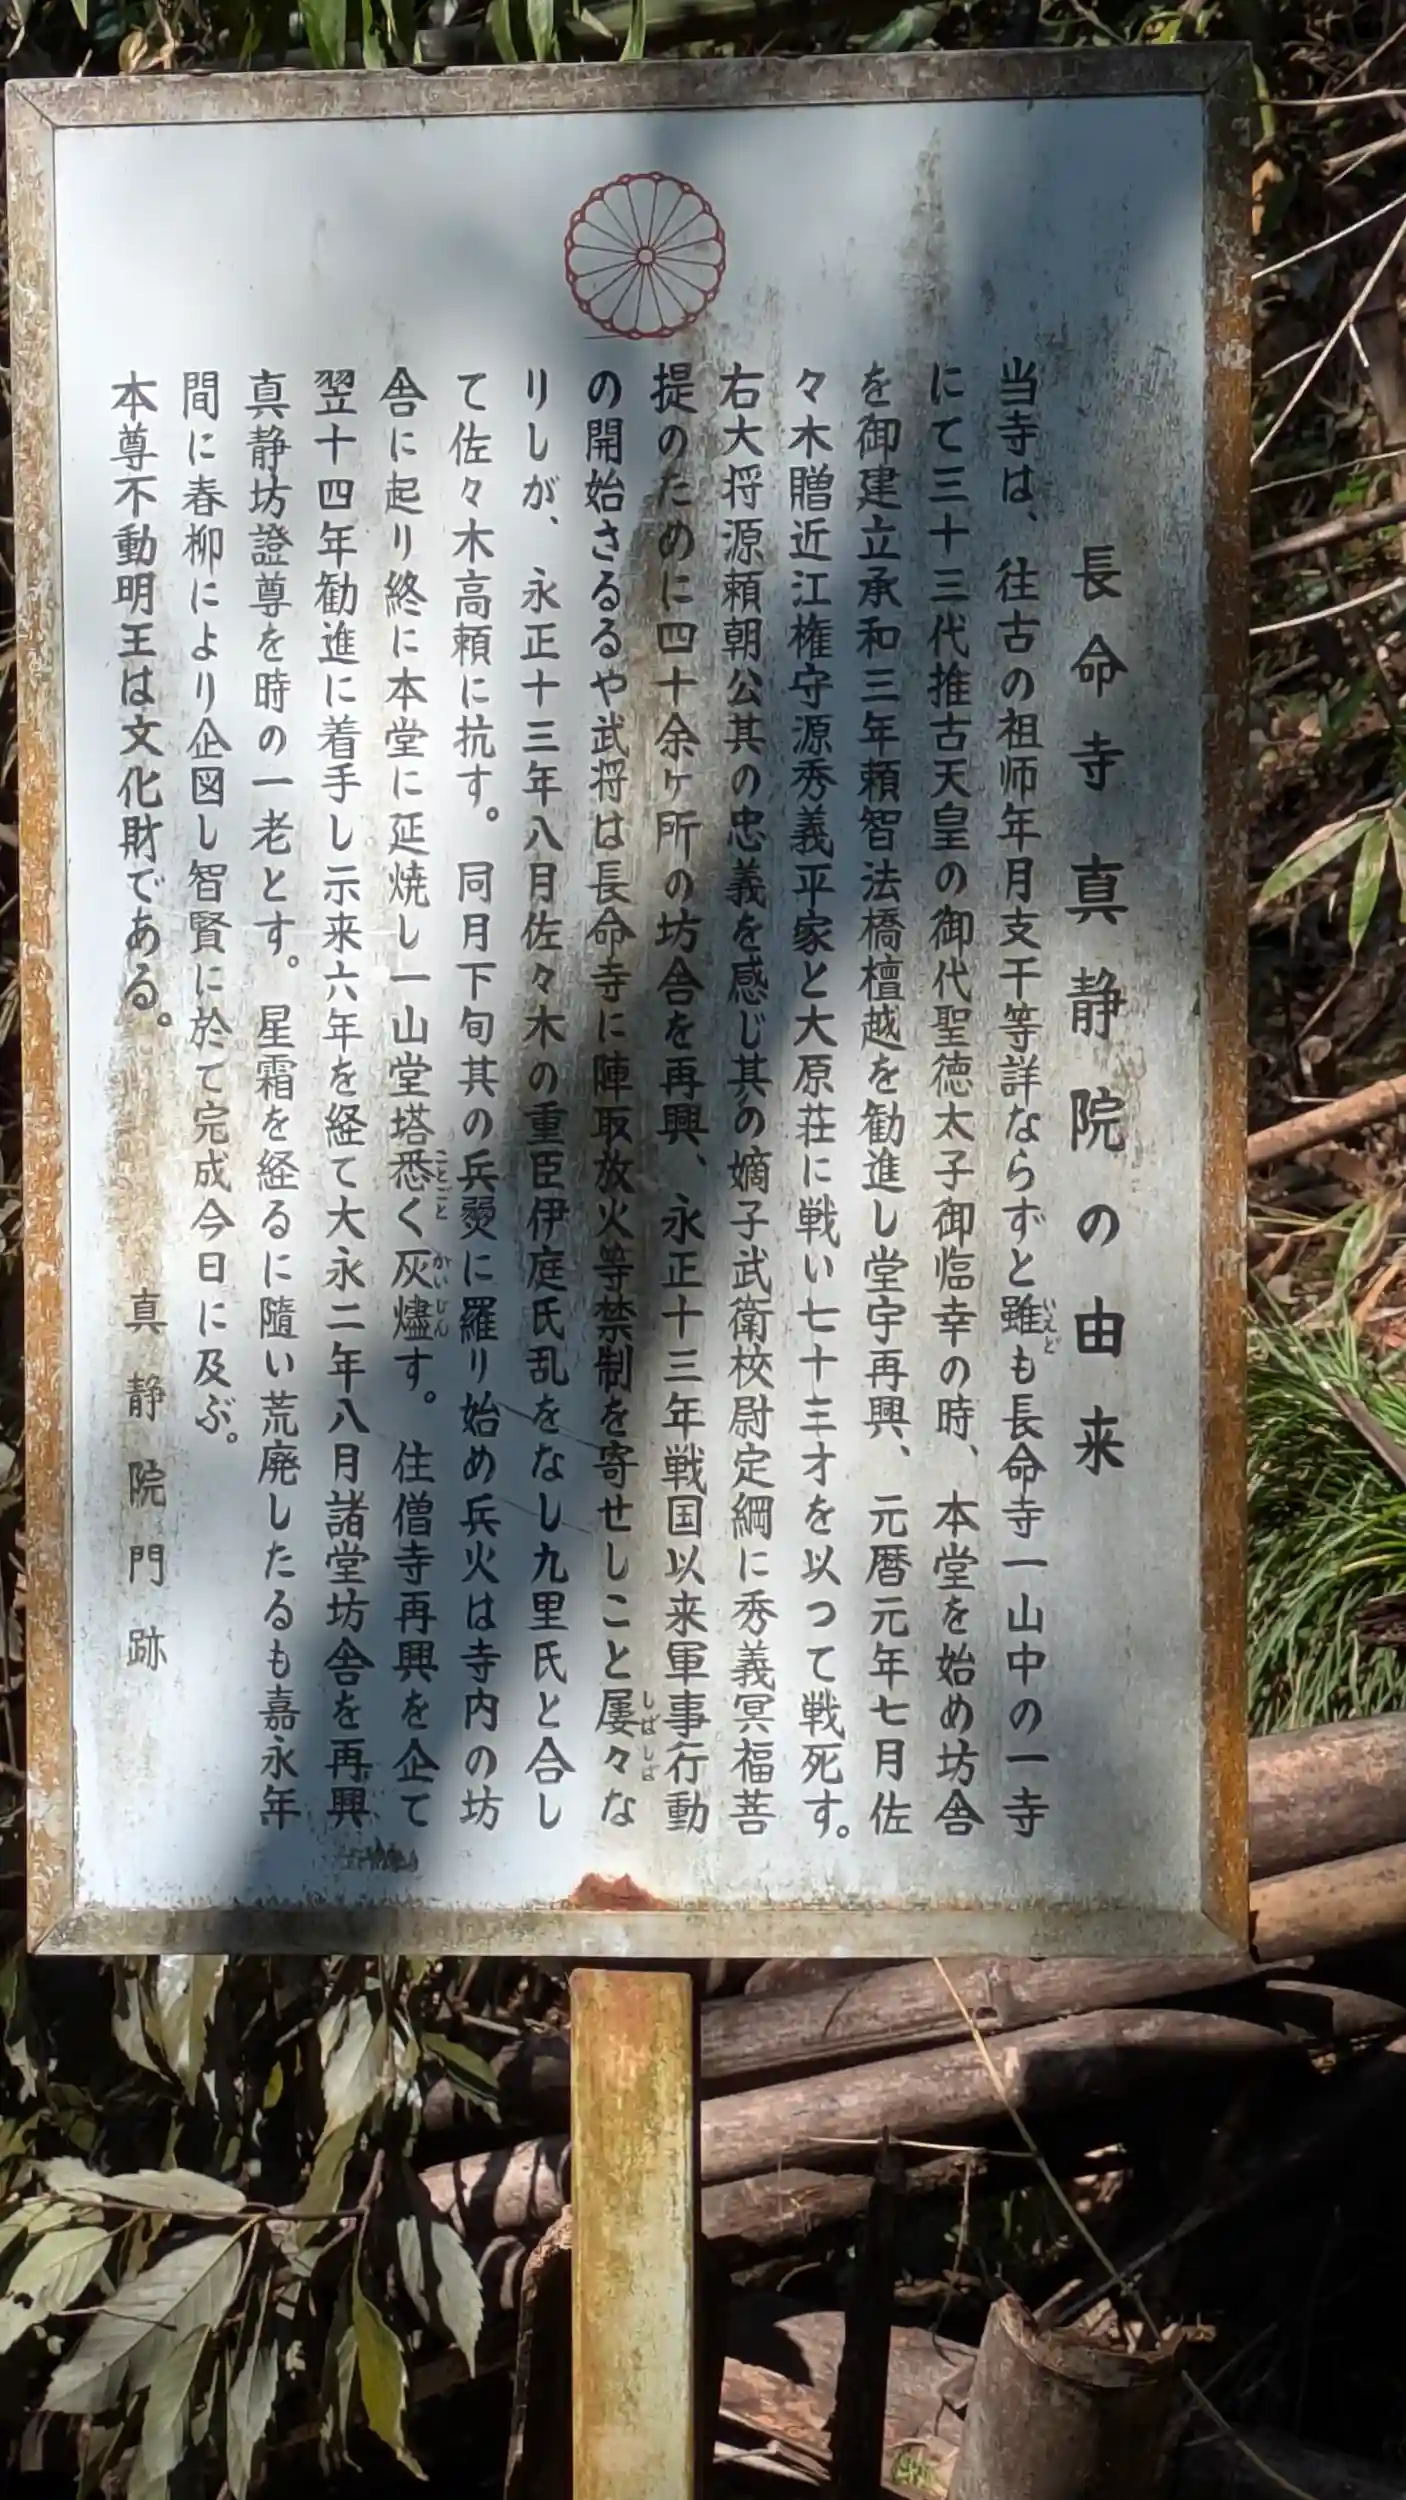 長命寺真静院の由来
当寺は、往古の祖师年月支干等詳ならずと雖も長命寺一山中の一寺
いえど
にて三十三代推古天皇の御代聖徳太子御臨幸の時、本堂を始め坊舎
を御建立承和三年頼智法橋檀越を勧進し堂宇再興、元暦元年七月佐
々木贈近江権守源秀義平家と大原荘に戦い七十三才を以つて戦死す。
右大将源頼朝公其の忠義を感じ其の嫡子武衛校尉定綱に秀義冥福菩
提のために四十余ヶ所の坊舎を再興、永正十三年戦国以来軍事行動
の開始さるるや武将は長命寺に陣取放火等禁制を寄せしこと屡々な
しばしば
りしが、永正十三年八月佐々木の重臣伊庭氏乱をなし九里氏と合し
て佐々木高頼に抗す。同月下旬其の兵燹に羅り始め兵火は寺内の坊
舎に起り終に本堂に延焼し一山堂塔悉く灰燼す。住僧寺再興を企て
ことごと
かいじん
翌十四年勧進に着手し示来六年を経て大永二年八月諸堂坊舎を再興
真静坊證尊を時の一老とす。星霜を経るに隨い荒廃したるも嘉永年
間に春柳により企図し智賢に於て完成今日に及ぶ。
本尊不動明王は文化財である。
真静院門跡